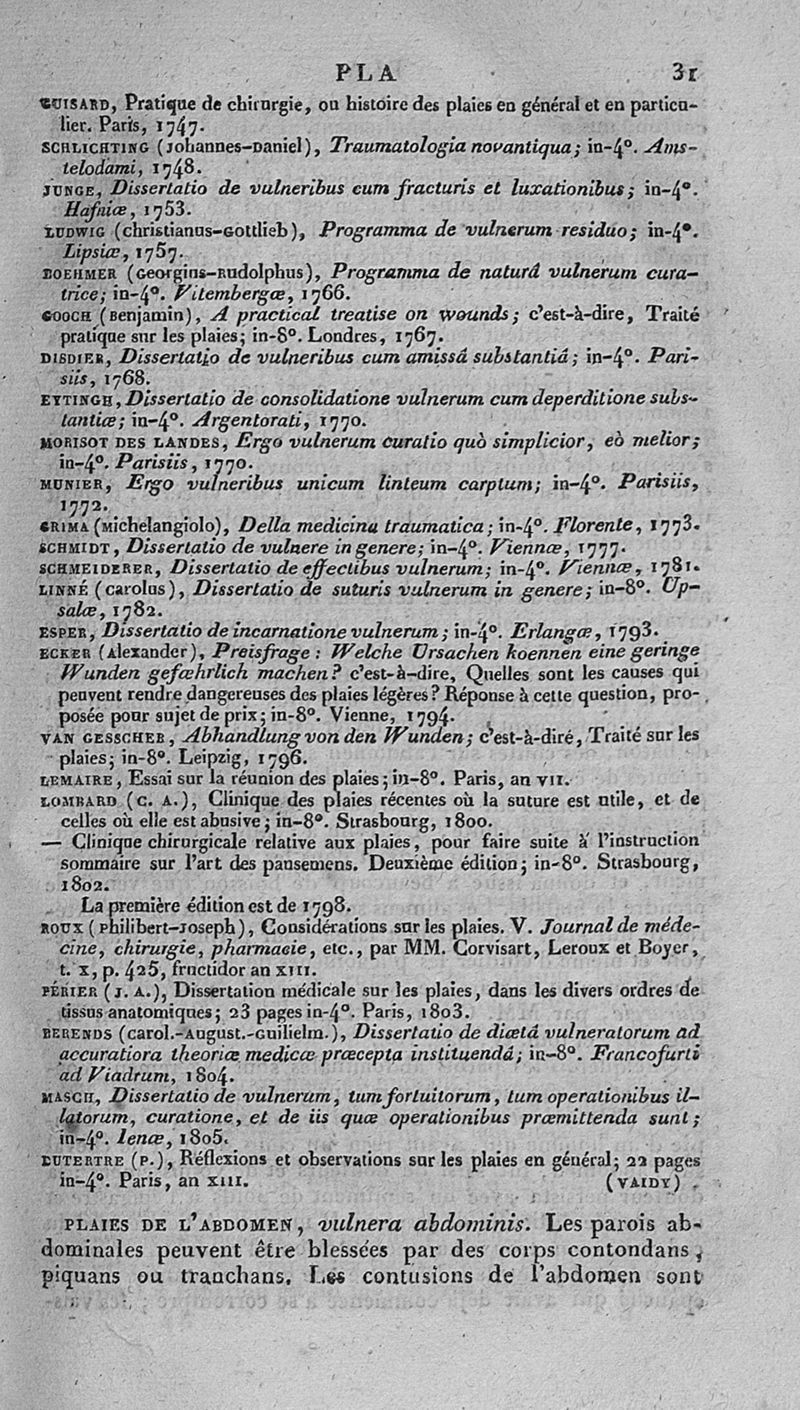 PLA 31
GUISARD, Pratique de chirurgie, ou histoire des plaies en général et en particu-
lier. Paris, 1747.
SCHLICHTING (Johannes-Daniel), Traumatologia novantiqua; in-4°. Ams-
telodami, 1748.
JUNGE, Dissertatio de vulneribus cum fracturis et luxationibus; in-4°.
Hafniæ, 1753.
LUDWIG (christianus-Gottlieb), Programma de vulnerum residuo; in-4°.
Lipsiæ, 1757.
BOEHMER (Georgius-Rudolphus), Programma de naturâ vulnerum cura-
trice; in-4°. Vitembergæ, 1766.
GOOCH (Benjamin), A practical treatise on wounds; c'est-à-dire, Traité
pratique sur les plaies; in-8°. Londres, 1767.
DISDIER, Dissertatio de vulneribus cum amissâ substantiâ; in-4°. Pari-
siis, 1768.
EYTINGH, Dissertatio de consolidatione vulnerum cum deperditione subs-
tantiæ; in-4°. Argentorati, 1770.
MORISOT DES LANDES, Ergo vulnerum curatio quò simplicior, eò melior;
in-4°. Parisiis, 1770.
MUNIER, Ergo vulneribus unicum linteum carptum; in-4°. Parisiis,
1772.
GRIMA (Michelangiolo), Della medicina traumatica; in-4°. Florente, 1773.
SCHMIDT, Dissertatio de vulnere in genere; in-4°. Viennæ, 1777.
SCHMEIDERER, Dissertatio de effectibus vulnerum; in-4°. Viennæ, 1781.
LINNÉ (carolus), Dissertatio de suturis vulnerum in genere; in-8°. Up-
salæ, 1782.
ESPER, Dissertatio de incarnatione vulnerum; in-4°. Erlangæ, 1793.
ECKER (Alexander), Preisfrage: Welche Ursachen koennen eine geringe
Wunden gefæhrlich machen? c'est-à-dire, Quelles sont les causes qui
peuvent rendre dangereuses des plaies légères? Réponse à cette question, pro-
posée pour sujet de prix; in-8°. Vienne, 1794.
VAN GESSCHER, Abhandlung von den Wunden; c'est-à-diré, Traité sur les
plaies; in-8°. Leipzig, 1796.
LEMAIRE, Essai sur la réunion des plaies; in-8°. Paris, an VII.
LOMBARD (C. A.), Clinique des plaies récentes où la suture est utile, et de
celles où elle est abusive; in-8°. Strasbourg, 1800.
— Clinique chirurgicale relative aux plaies, pour faire suite à l'instruction
sommaire sur l'art des pansemens. Deuxième édition; in-8°. Strasbourg,
1802.
La première édition est de 1798.
ROUX (Philibert-Joseph), Considérations sur les plaies. V. Journal de méde-
cine, chirurgie, pharmacie, etc., par MM. Corvisart, Leroux et Boyer,
t. X, p. 425, fructidor an XIII.
PÉRIER (J. A.), Dissertation médicale sur les plaies, dans les divers ordres de
tissus anatomiques; 23 pages in-4°. Paris, 1803.
BERENDS (carol.-August.-Guilielm.), Dissertatio de diætâ vulneratorum ad
accuratiora theoriæ medicæ præcepta instituendâ; in-8°. Francofurti
ad Viadrum, 1804.
MASCH, Dissertatio de vulnerum, tum fortuitorum, tum operationibus il-
latorum, curatione, et de iis quæ operationibus præmittenda sunt;
in-4°. Ienæ, 1805.
DUTERTRE (P.), Réflexions et observations sur les plaies en général; 22 pages
in-4°. Paris, an XIII. (VAIDY)
PLAIES DE L'ABDOMEN, vulnera abdominis. Les parois ab-
dominales peuvent être blessées par des corps contondans,
piquans ou tranchans. Les contusions de l'abdomen sont